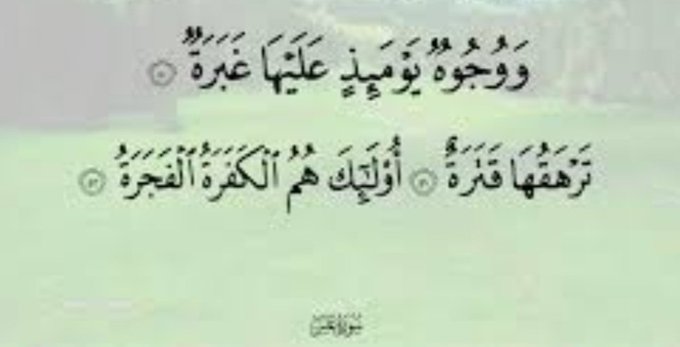 وَوُجُوهٌ يَوْمَئِذٍ عَلَيْهَا غَبَرَةٌ ۝
تَرْهَقُهَا قَتَرَةٌ ۝ أُوْلَٰٓئِكَ هُمُ ٱلْكَفَرَةُ ٱلْفَجَرَةُ ۝
سورة عبس